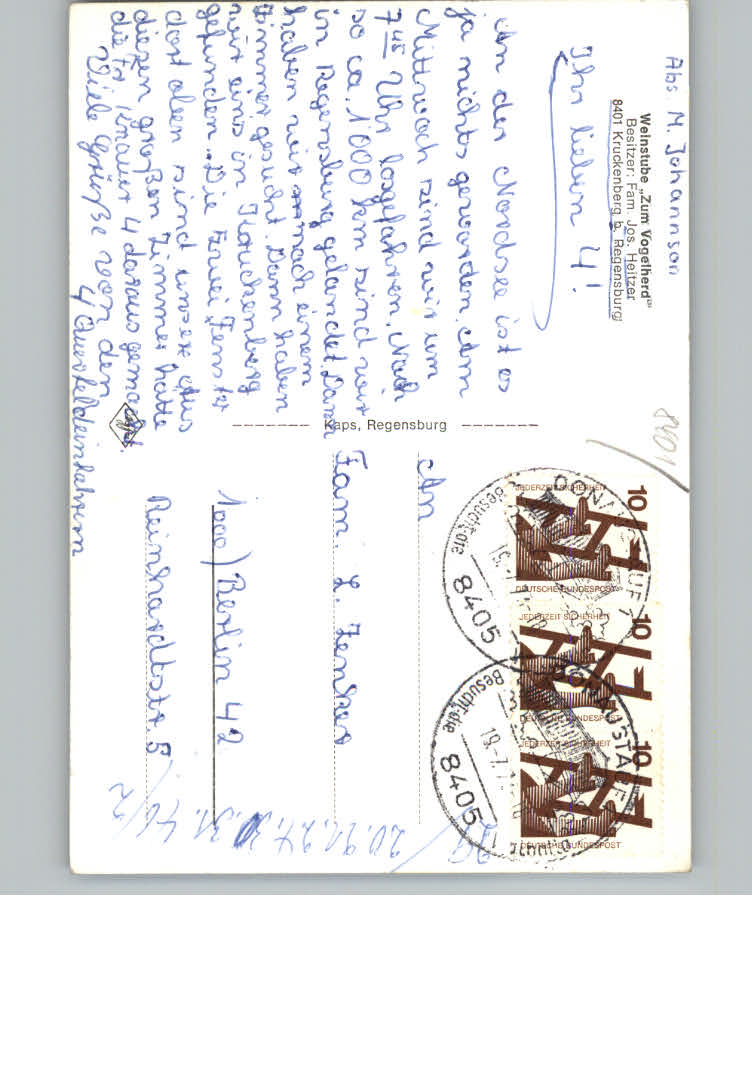 Abs. M. Johannson
Weinstube „Zum Vogelherd"
Besitzer: Fam. Jos. Heitzer
8401 Kruckenberg b. Regensburg
Ihr lieben 4!
An der Nordsee ist es
ja nichts geworden. Am
Mittwoch sind wir um
7 45 Uhr losgefahren. Nach
so ca. 1000 km sind wir
in Regensburg gelandet. Dann
haben wir nach einem
Zimmer gesucht. Dann haben
wir eins in Kruckenberg
gefunden. Die zwei Fenster
dort oben sind unser. Aus
diesen großen Zimmer hatte
die Fr. 4 daraus gemacht.
Viele Grüße von den
4 Querfeldeinfahrern
Kaps, Regensburg
8401
An
Fam. L. Zenker
1000) Berlin 42
Reinhardtstr. 5
10
JEDERZEIT SICHERHEIT
DEUTSCHE BUNDESPOST
10
JEDERZEIT SICHERHEIT
DEUTSCHE BUNDESPOST
10
JEDERZEIT SICHERHEIT
DEUTSCHE BUNDESPOST
DONAUSTAUF 1
Besucht die
8405
DONAUSTAUF 1
Besucht die
19.-7.7
8405